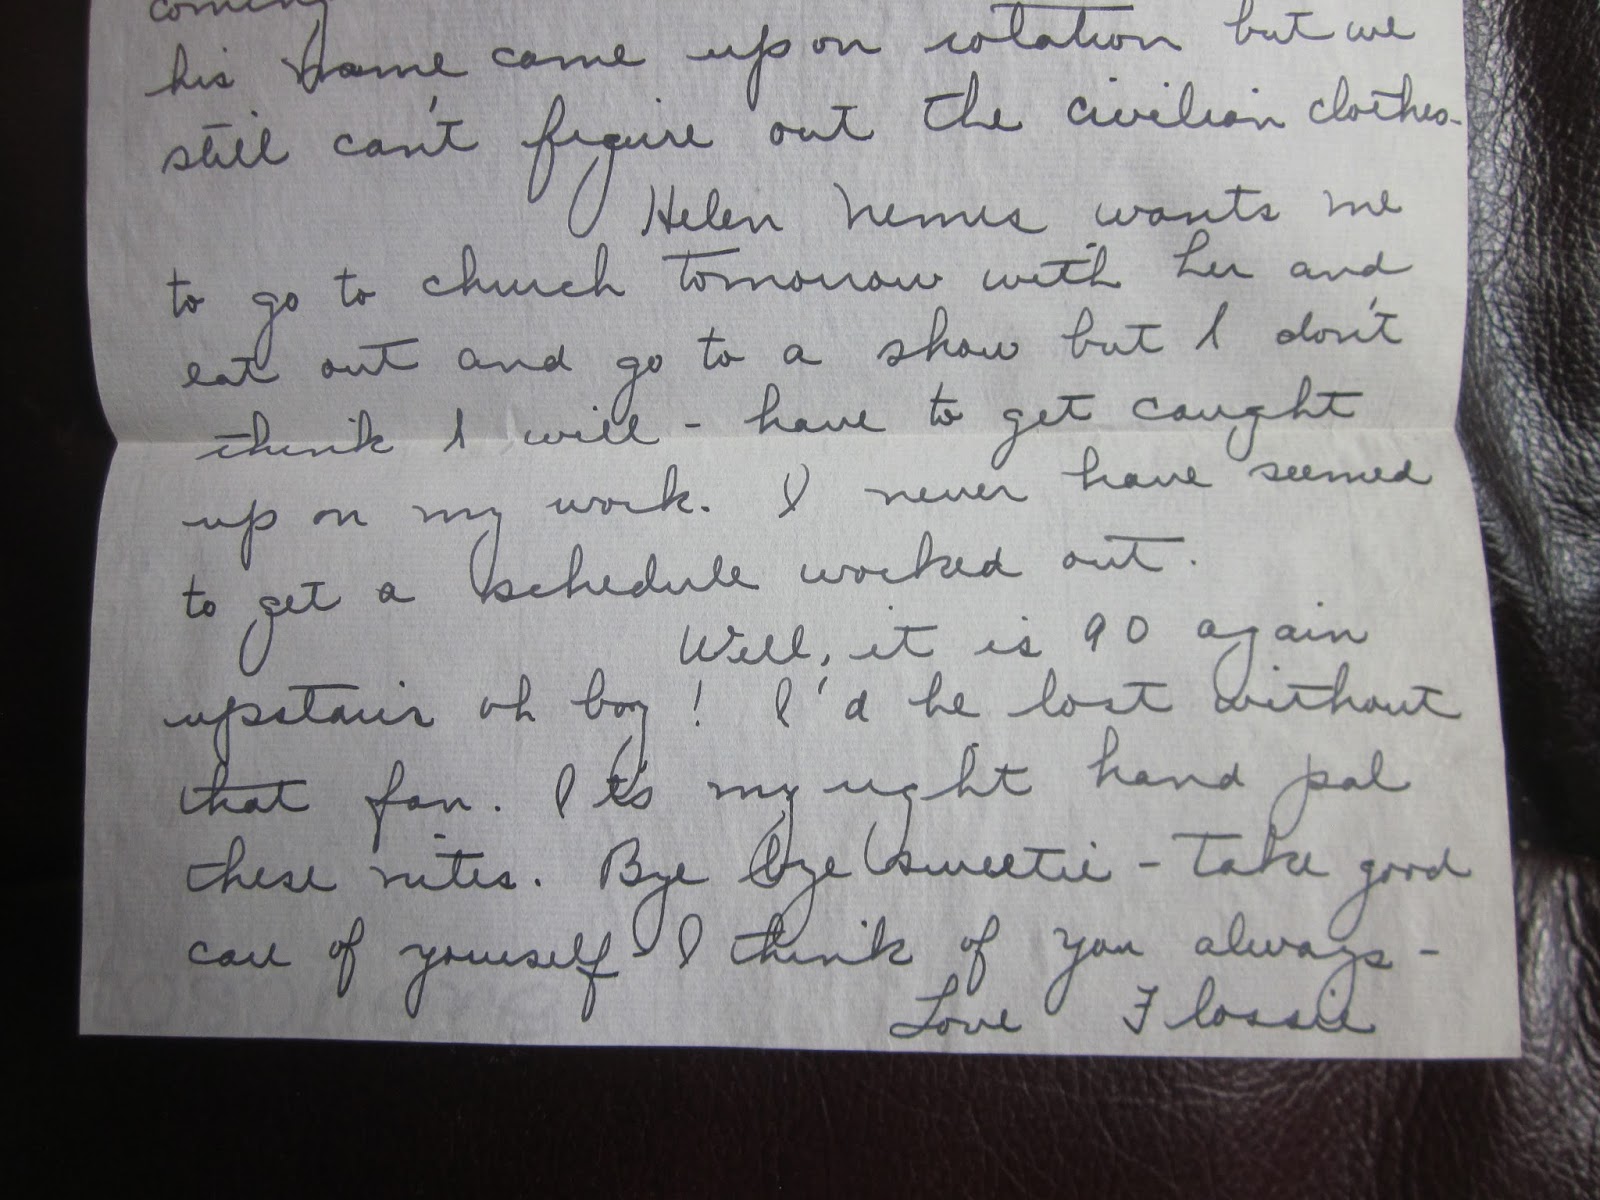 coming
his name came up on rotation but we
still can't figure out the civilian clothes-
Helen Nemes wants me
to go to church tomorrow with her and
eat out and go to a show but I don't
think I will - have to get caught
up on my work. I never have seemed
to get a schedule worked out.
Well, it is 90 again
upstairs oh boy! I'd be lost without
that fan. It's my right hand pal
these nites. Bye bye sweetie - take good
care of yourself I think of you always -
Love Flossie